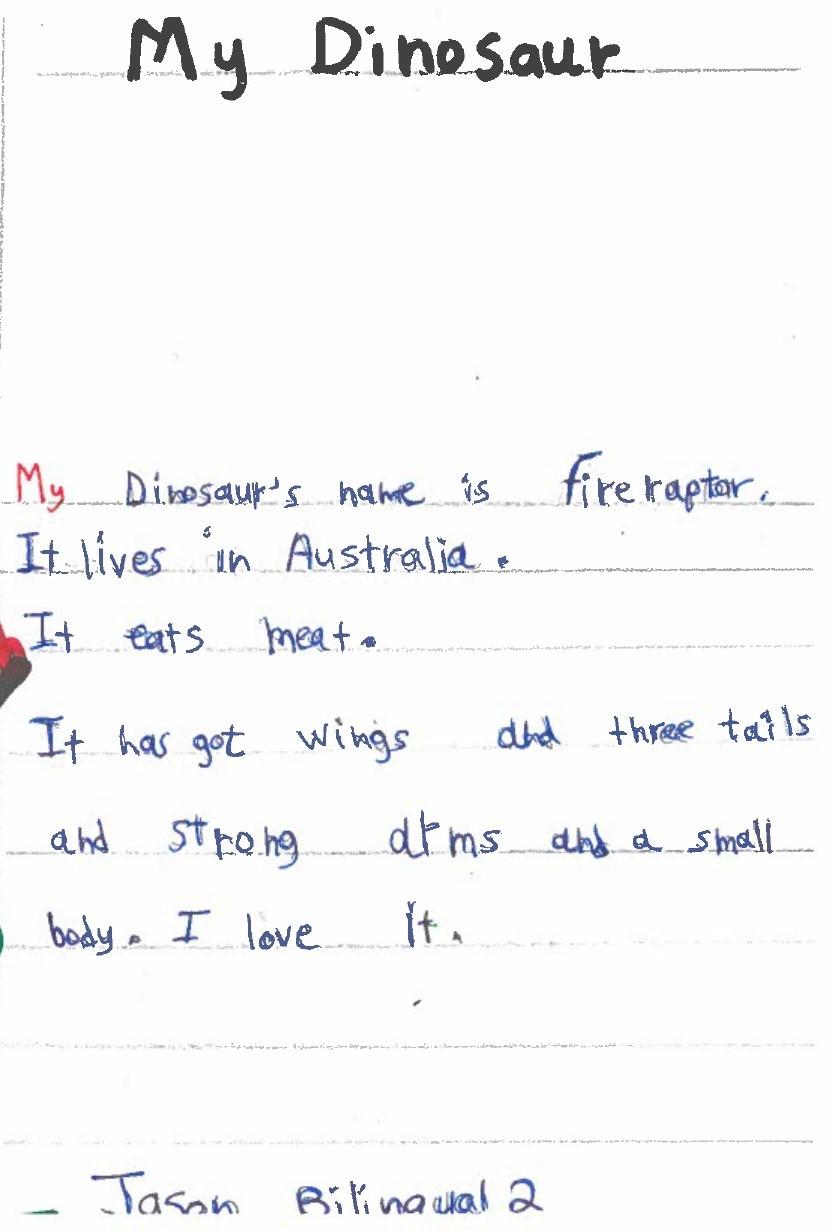 My Dinosaur
My Dinosaur's name is fireraptor.
It lives in Australia.
It eats meat.
It has got wings and three tails
and strong arms and a small
body. I love it.
- Jason Bilingual 2